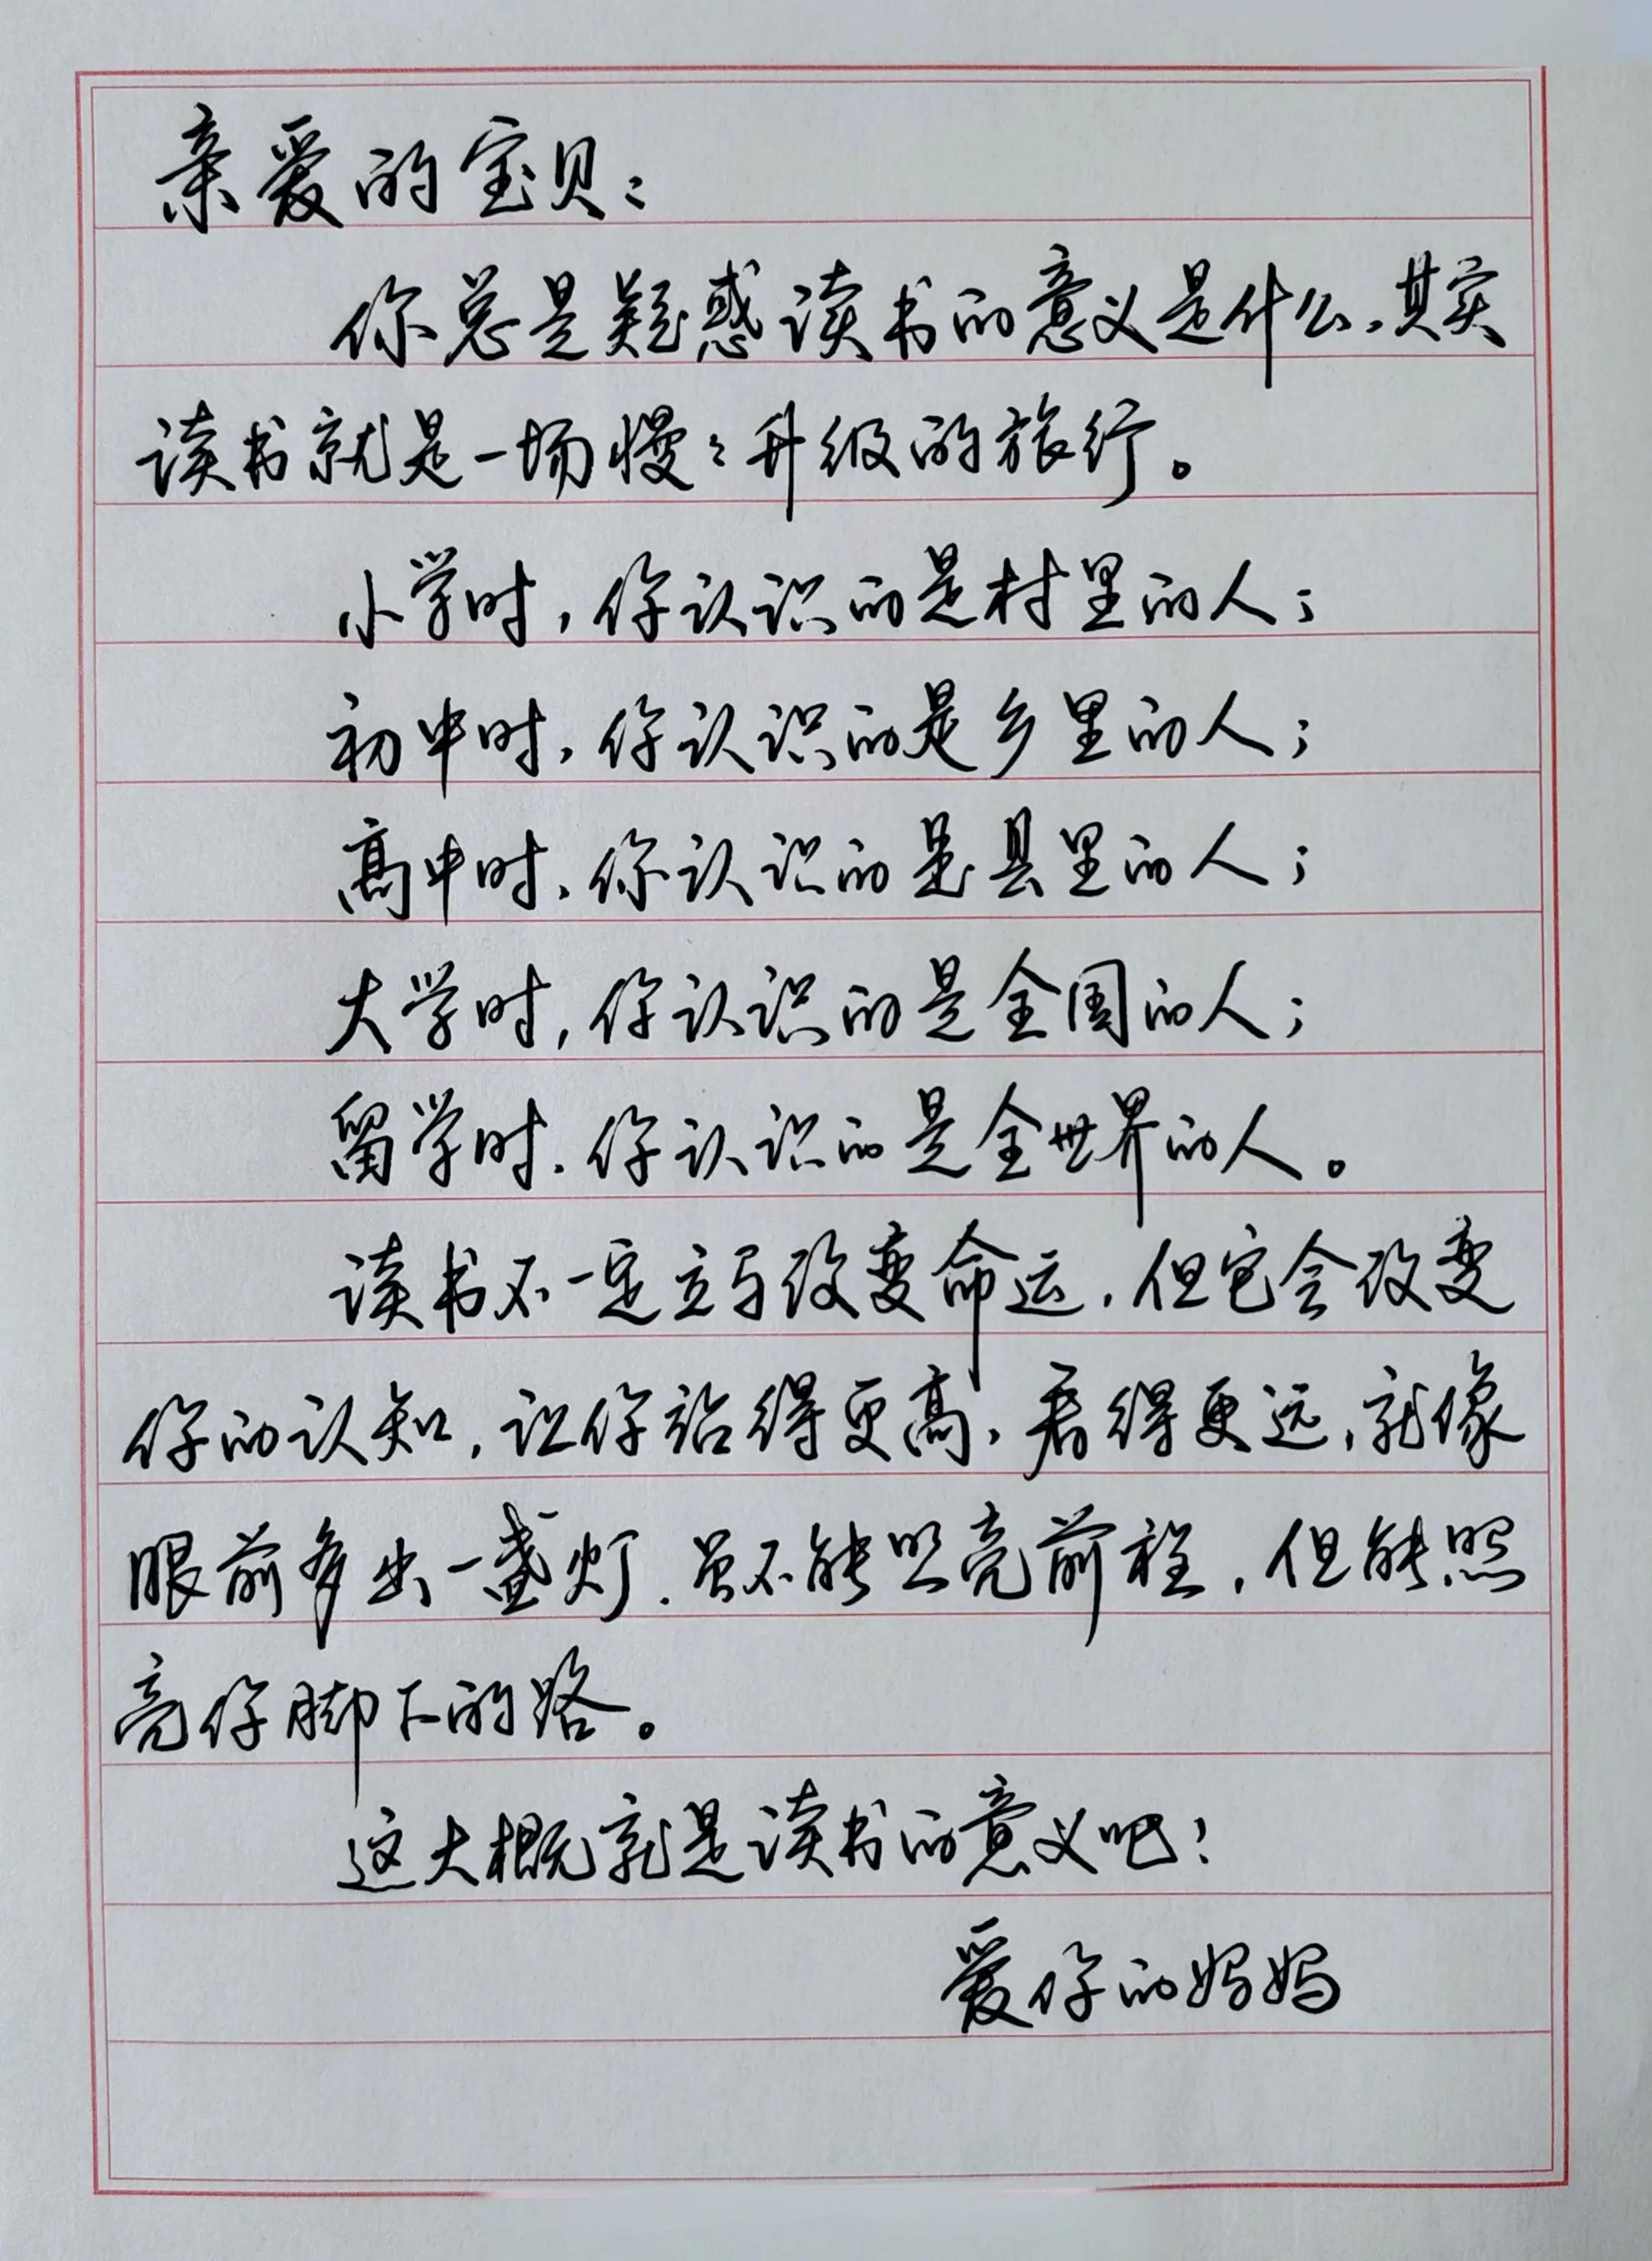 亲爱的宝贝：
你总是疑惑读书的意义是什么，其实
读书就是一场慢々升级的旅行。
小学时，你认识的是村里的人；
初中时，你认识的是乡里的人；
高中时，你认识的是县里的人；
大学时，你认识的是全国的人；
留学时，你认识的是全世界的人。
读书不一定立马改变命运，但它会改变
你的认知，让你站得更高，看得更远，就像
眼前多出一盏灯，虽不能照亮前程，但能照
亮你脚下的路。
这大概就是读书的意义吧！
爱你的妈妈